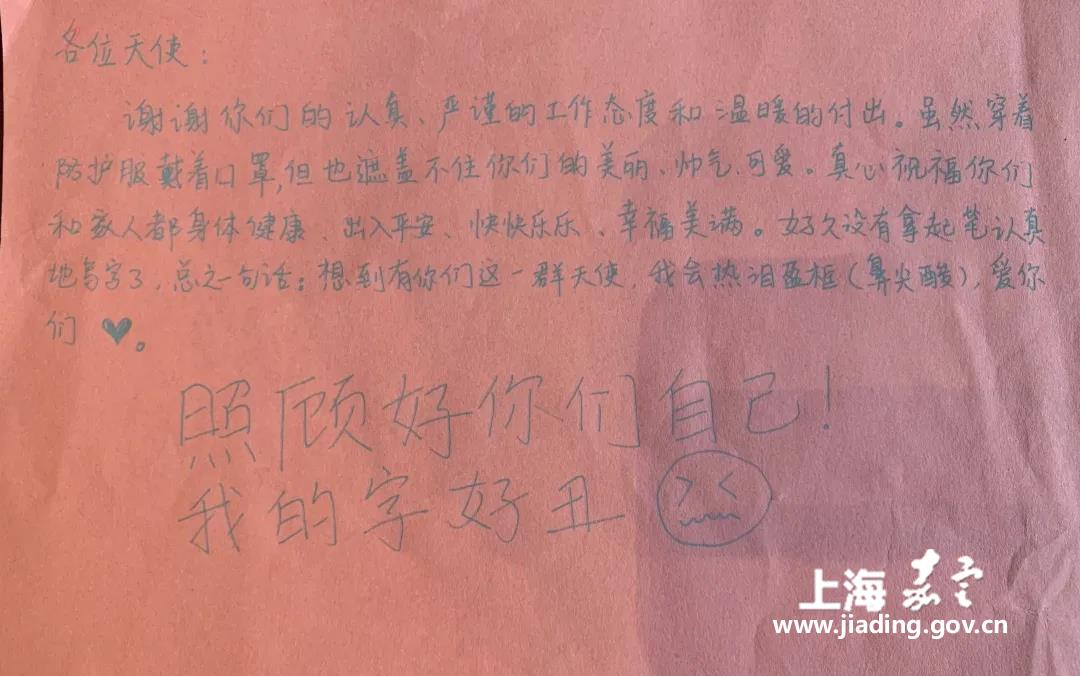 各位天使：
谢谢你们的认真、严谨的工作态度和温暖的付出。虽然穿着
防护服戴着口罩,但也遮盖不住你们的美丽、帅气、可爱。真心祝福你们
和家人都身体健康、出入平安、快快乐乐、幸福美满。好久没有拿起笔认真
地写字了，总之一句话：想到有你们这一群天使，我会热泪盈框（鼻尖酸），爱你
们 ♥。
照顾好你们自己！
我的字好丑
上海嘉定
www.jiading.gov.cn